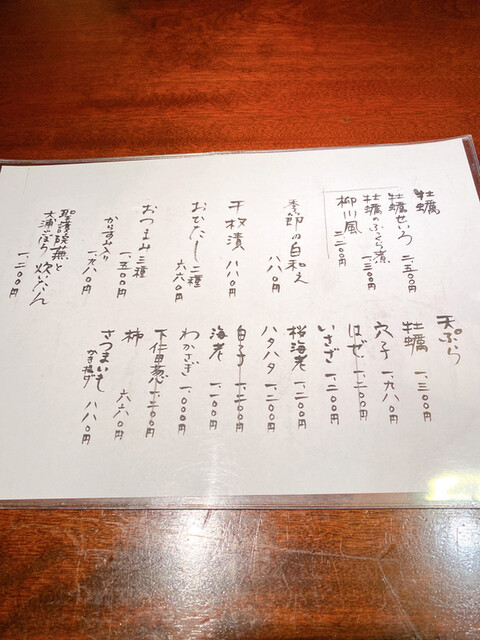 牡蠣
牡蠣せいろ 二、五〇〇円
牡蠣のふっくら煮 一、三〇〇円
柳川風 二、二〇〇円
季節の白和え 八八〇円
千枚漬 八八〇円
おひたし二種 六六〇円
おつまみ三種 一、五〇〇円
からすみ入り 一、九八〇円
聖護院蕪と
大浦ごぼう 炊いたん 一、二〇〇円
天ぷら
牡蠣 一、三〇〇円
穴子 一、九八〇円
はぜ 一、二〇〇円
いさざ 一、二〇〇円
桜海老 一、二〇〇円
ハタハタ 一、二〇〇円
白子 一、二〇〇円
海老 一、二〇〇円
わかさぎ 一、〇〇〇円
下仁田葱 一、二〇〇円
柿 六六〇円
さつまいも
かき揚げ 八八〇円